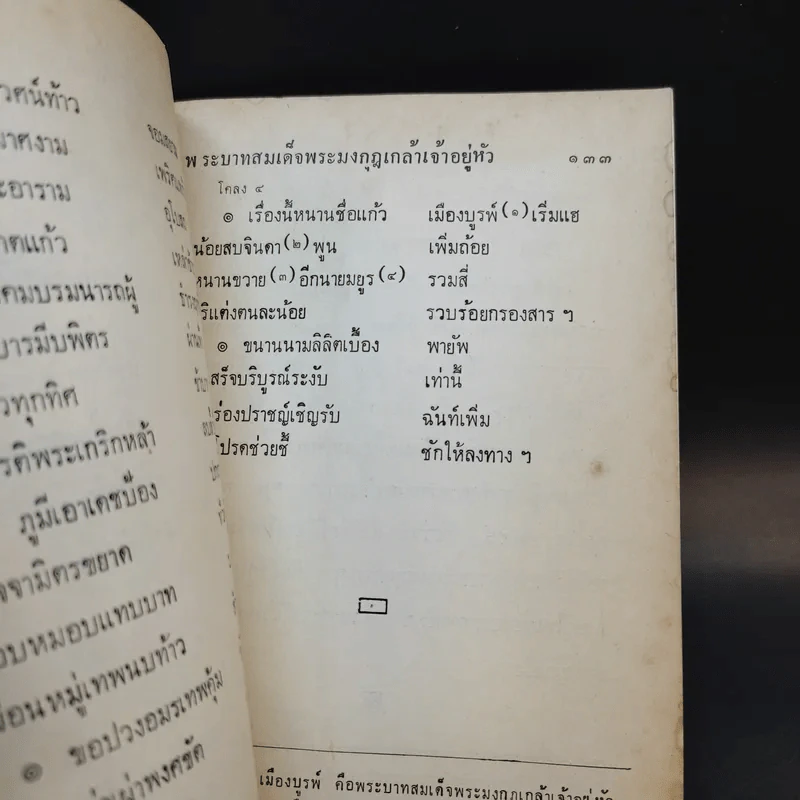 วศน์ท้าว
มาศงาม
ะอาราม
าตแก้ว
คมบรมนารถผู้
บารมีบพิตร
วทุกทิศ
รติพระเกริกหล้า
ภูมีเอาเดชป้อง
จจามิตรขยาด
อบหมอบแทบบาท
อนหมู่เทพนบท้าว
๏ ขอปวงอมรเทพคุ้ม
เผ่าพงศชัด
พระบาทสมเด็จพระมงกุฎเกล้าเจ้าอยู่หัว ๑๓๓
โคลง ๔
๏ เรื่องนี้หนานชื่อแก้ว เมืองบูรพ์ (๑) เริ่มแฮ
น้อยสบจินดา (๒) พูน เพิ่มถ้อย
หนานขวาย (๓) อีกนายมยูร (๔) รวมสี่
ริแต่งตนละน้อย รวบร้อยกรองสาร ฯ
๏ ขนานนามลิลิตเบื้อง พายัพ
สร็จบริบูรณ์ระงับ เท่านี้
ร่องปราชญ์เชิญรับ ฉันท์เพิ่ม
โปรดช่วยชี้ ชักให้ลงทาง ฯ
เมืองบูรพ์ คือพระบาทสมเด็จพระมงกุฎเกล้าเจ้าอยู่หัว